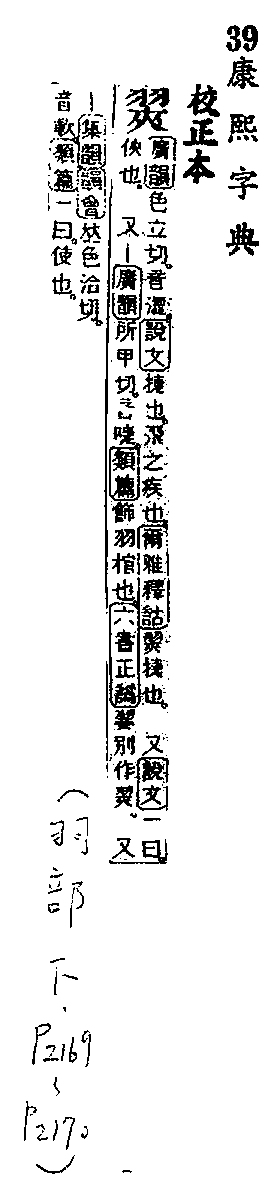 39康熙字典
校正本
翣
廣韻色立切。音澀。說文捷也。飛之疾也。爾雅釋詁翜捷也。 又說文一曰。
俠也。 又廣韻所甲切。類篇飾羽棺也。六書正譌翣別作翜。 又
集韻韻會𠀤色洽切。
音歃。類篇一曰。使也。
(羽部 下.
P2169~
P2170)